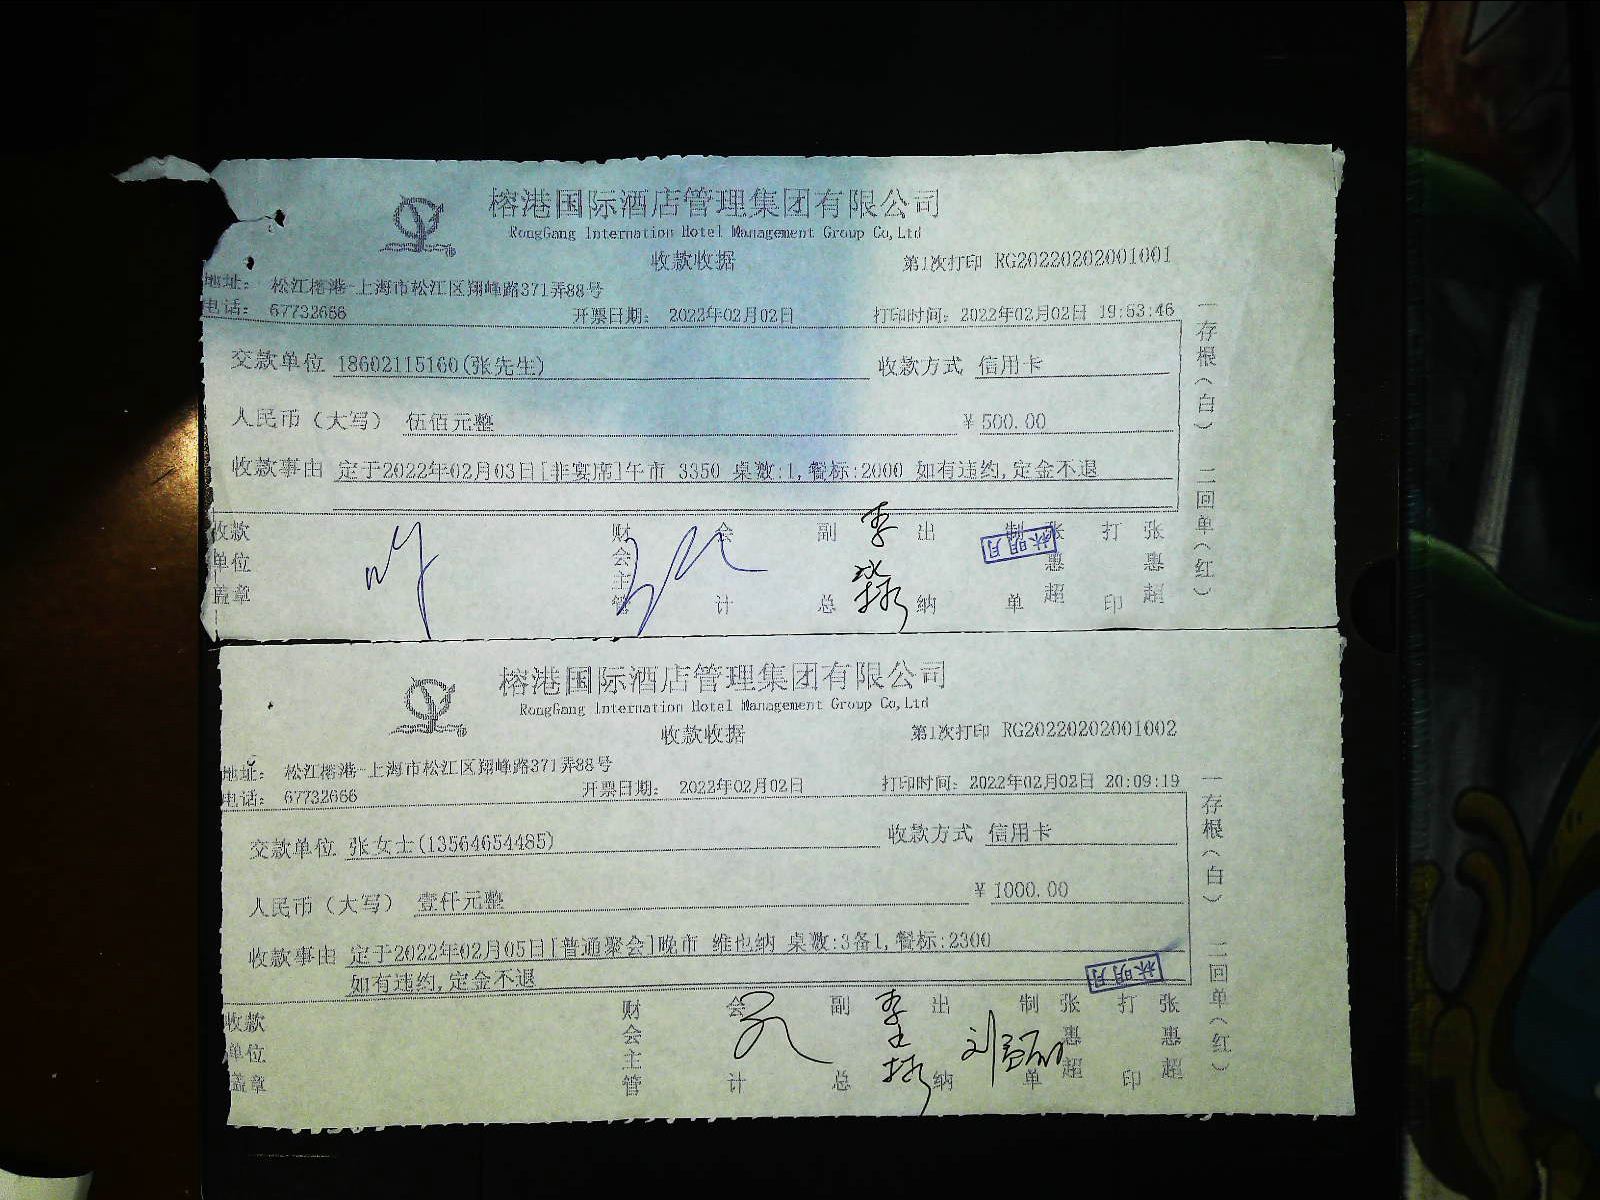 榕港国际酒店管理集团有限公司
RongGang Internation Hotel Management Group Co,Ltd
收款收据
第1次打印 RG20220202001001
地址: 松江榕港-上海市松江区翔峰路371弄88号
电话: 67732666 开票日期: 2022年02月02日 打印时间: 2022年02月02日 19:53:46
交款单位 18602115160(张先生) 收款方式 信用卡
人民币(大写) 伍佰元整 ¥ 500.00
收款事由 定于2022年02月03日[非宴席]午市 3350 桌数:1,餐标:2000 如有违约,定金不退
收款单位盖章 财会主管 会计 副总 李 出纳 制单 张惠超 打印 张惠超
林明月
一存根(白) 二回单(红)
榕港国际酒店管理集团有限公司
RongGang Internation Hotel Management Group Co,Ltd
收款收据
第1次打印 RG20220202001002
地址: 松江榕港-上海市松江区翔峰路371弄88号
电话: 67732666 开票日期: 2022年02月02日 打印时间: 2022年02月02日 20:09:19
交款单位 张女士(13564654485) 收款方式 信用卡
人民币(大写) 壹仟元整 ¥ 1000.00
收款事由 定于2022年02月05日[普通聚会]晚市 维也纳 桌数:3备1,餐标:2300
如有违约,定金不退
林明月
收款单位盖章 财会主管 会计 副总 李 出纳 制单 张惠超 打印 张惠超
一存根(白) 二回单(红)